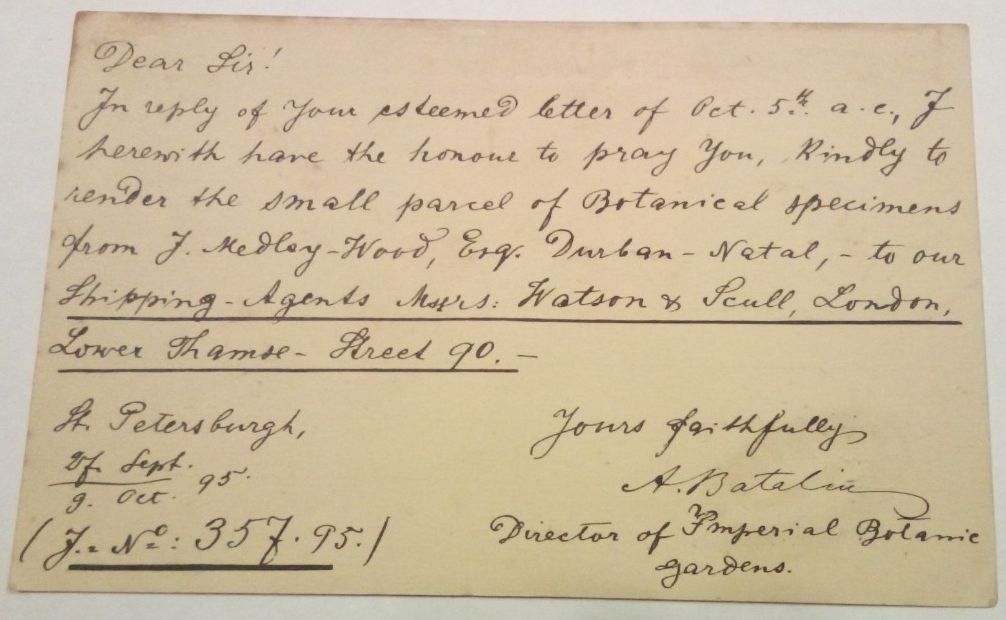 Dear Sir!
In reply of Your esteemed letter of Oct. 5th. a. c., I
herewith have the honour to pray You, kindly to
render the small parcel of Botanical specimens
from J. Medley-Wood, Esq. Durban - Natal, - to our
Shipping-Agents Mssrs: Watson & Scull, London,
Lower Thamse- Street 90. -
St. Petersburgh,
27. Sept.
9. Oct. 95.
(J.= No: 357. 95.)
Yours faithfully
A. Batalin
Director of Imperial Botanic
gardens.